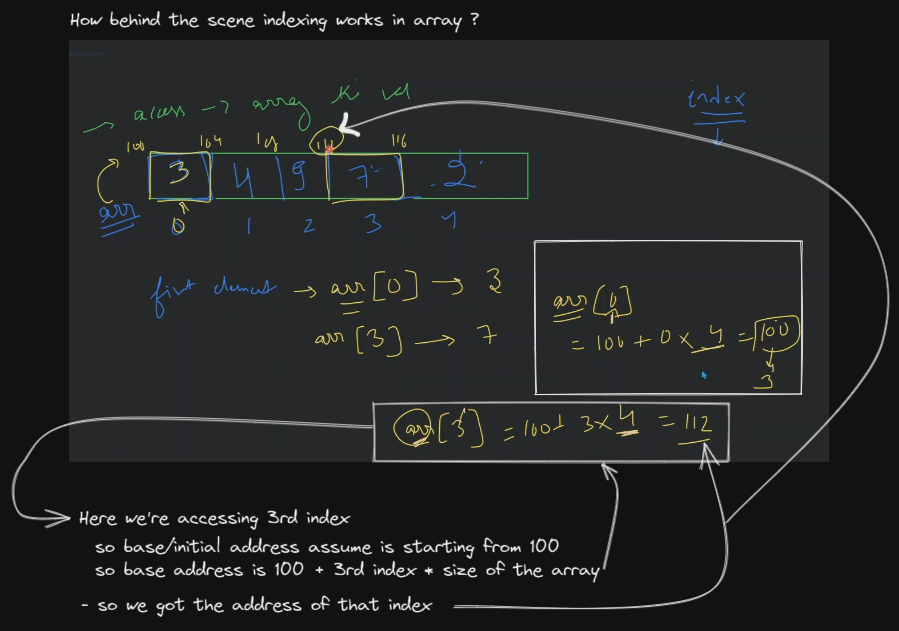 How behind the scene indexing works in array ?
→ access → array ki val
index
100 104 108 112 116
3 4 9 7 2
arr
0 1 2 3 4
first element → arr[0] → 3
arr[3] → 7
arr[0]
= 100 + 0 × 4 = 100
3
arr[3] = 100+ 3×4 = 112
Here we're accessing 3rd index
so base/initial address assume is starting from 100
so base address is 100 + 3rd index * size of the array
- so we got the address of that index